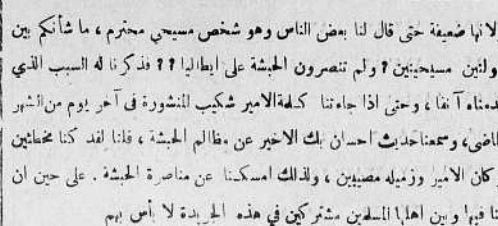 لانها ضعيفة حتى قال لنا بعض الناس وهو شخص مسيحي محترم ، ما شأنكم بين
دولتين مسيحيتين ؟ ولم تنصرون الحبشة على ايطاليا ؟؟ فذكرنا له السبب الذي
قدمناه آنفا ، وحتى اذا جاءتنا كلمة الامير شكيب المنشورة في آخر يوم من الشهر
الماضي، وسمعنا حديث احسان بك الاخير عن مظالم الحبشة ، قلنا لقد كنا مخطئين
وكان الامير وزميله مصيبين ، ولذلك امسكنا عن مناصرة الحبشة . على حين ان
لنا فيها وبين اهلها المسلمين مشتركين في هذه الجريدة لا بأس بهم